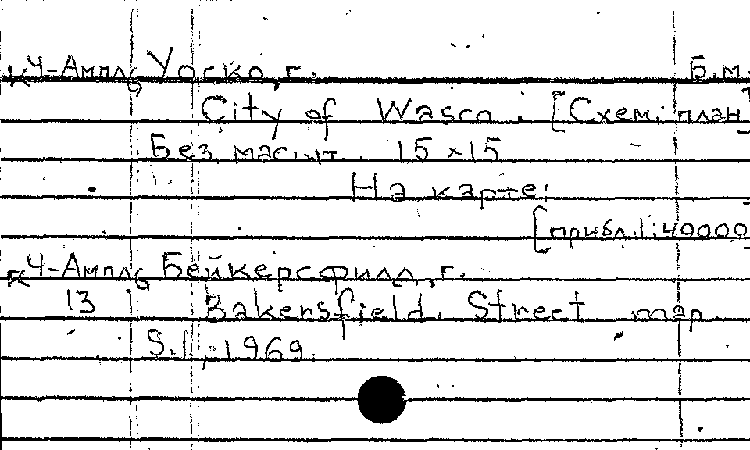 К4-Ампл6 Уоско, г. Б.м.
City of Wasco. [Схем. план]
Без масшт. 15×15
На карте:
[прибл. 1:40000
К4-Ампл6 Бейкерсфилд, г.
13 Bakersfield. Street map
S.l., 1969.